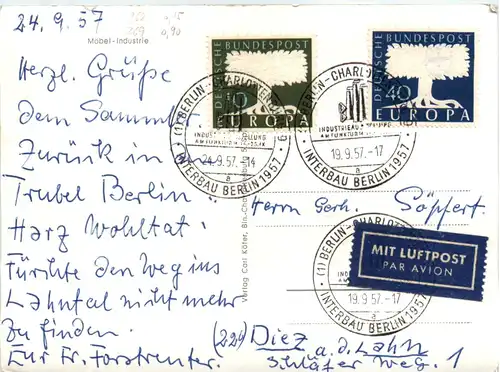 24.9.57
Möbel-Industrie
Herzl. Grüße
dem Sammler.
Zurück in den
Trubel Berlin.
Harz Wohltat.
Fürchte den Weg ins
Lahntal nicht mehr
zu finden.
Eur Fr. Forstreuter.
Verlag Carl Köfer, Bln.-Charlottenburg
DEUTSCHE BUNDESPOST
10
EUROPA
DEUTSCHE BUNDESPOST
40
EUROPA
(1) BERLIN-CHARLOTTENBURG
INDUSTRIEAUSSTELLUNG
AM FUNKTURM
24.9.57.-14
a
INTERBAU BERLIN 1957
(1) BERLIN-CHARLOTTENBURG
INDUSTRIEAUSSTELLUNG
AM FUNKTURM
19.9.57.-17
a
INTERBAU BERLIN 1957
Herrn Gerh. Söpfert.
MIT LUFTPOST
PAR AVION
(1) BERLIN-CHARLOTTENBURG
19.9.57.-17
a
INTERBAU BERLIN 1957
(22b) Diez a. d. Lahn
Schläfer Weg. 1